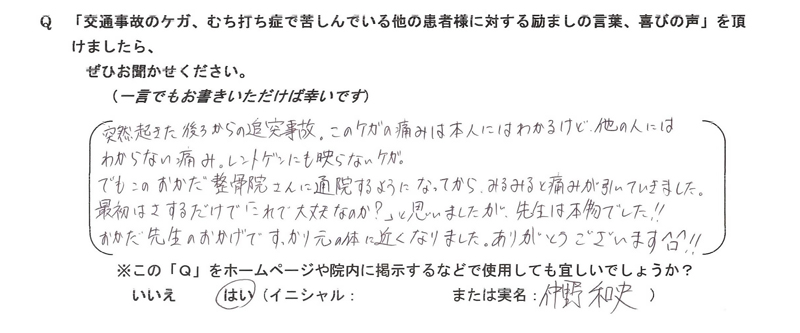 Q 「交通事故のケガ、むち打ち症で苦しんでいる他の患者様に対する励ましの言葉、喜びの声」を頂
けましたら、
ぜひお聞かせください。
（一言でもお書きいただけば幸いです）
突然起きた後ろからの追突事故。このケガの痛みは本人にはわかるけど、他の人には
わからない痛み。レントゲンにも映らないケガ。
でもこのおかだ整骨院さんに通院するようになってから、みるみると痛みが引いていきました。
最初はさするだけで「これで大丈夫なのか？」と思いましたが、先生は本物でした!!
おかだ先生のおかげですっかり元の体に近くなりました。ありがとうございます^^!!
※この「Q」をホームページや院内に掲示するなどで使用しても宜しいでしょうか？
いいえ はい（イニシャル： または実名：仲野 和史 ）